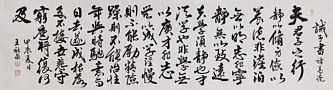 誡子書 諸葛亮
夫君子之行
静以修身儉以
養德非澹泊
無以明志非寧
静無以致遠
夫學須静也才
須學也非學無
以廣才非志
無以成學淫慢
則不能勵精險
躁則不能冶性年
與時馳意與
日去遂成枯落
多不接世悲守
窮廬將復何
及
甲辰夏日